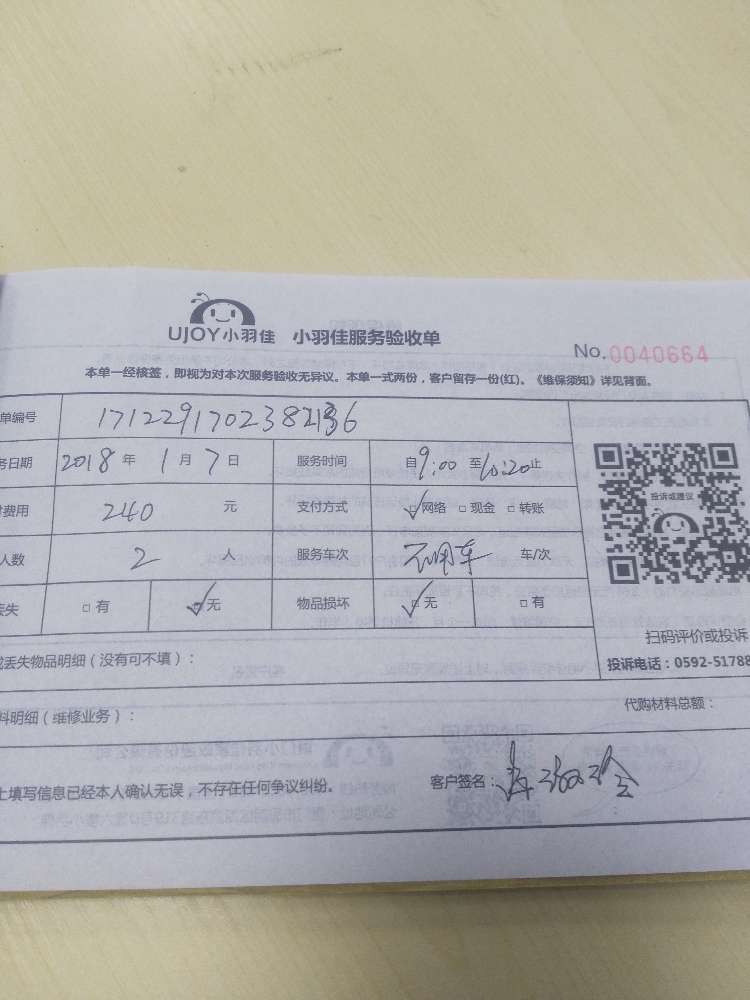 UJOY小羽佳 小羽佳服务验收单
No.0040664
本单一经核签，即视为对本次服务验收无异议。本单一式两份，客户留存一份(红)。《维保须知》详见背面。
单编号 171229170238
务日期 2018 年 1 月 7 日 服务时间 自 9:00 至 10:20 止
费用 240 元 支付方式 网络 现金 转账
人数 2 人 服务车次 不用车 车/次
丢失 有 无 物品损坏 无 有
投诉或建议
扫码评价或投诉
投诉电话：0592-51788
丢失物品明细（没有可不填）：
料明细（维修业务）： 代购材料总额：
上填写信息已经本人确认无误，不存在任何争议纠纷。 客户签名：